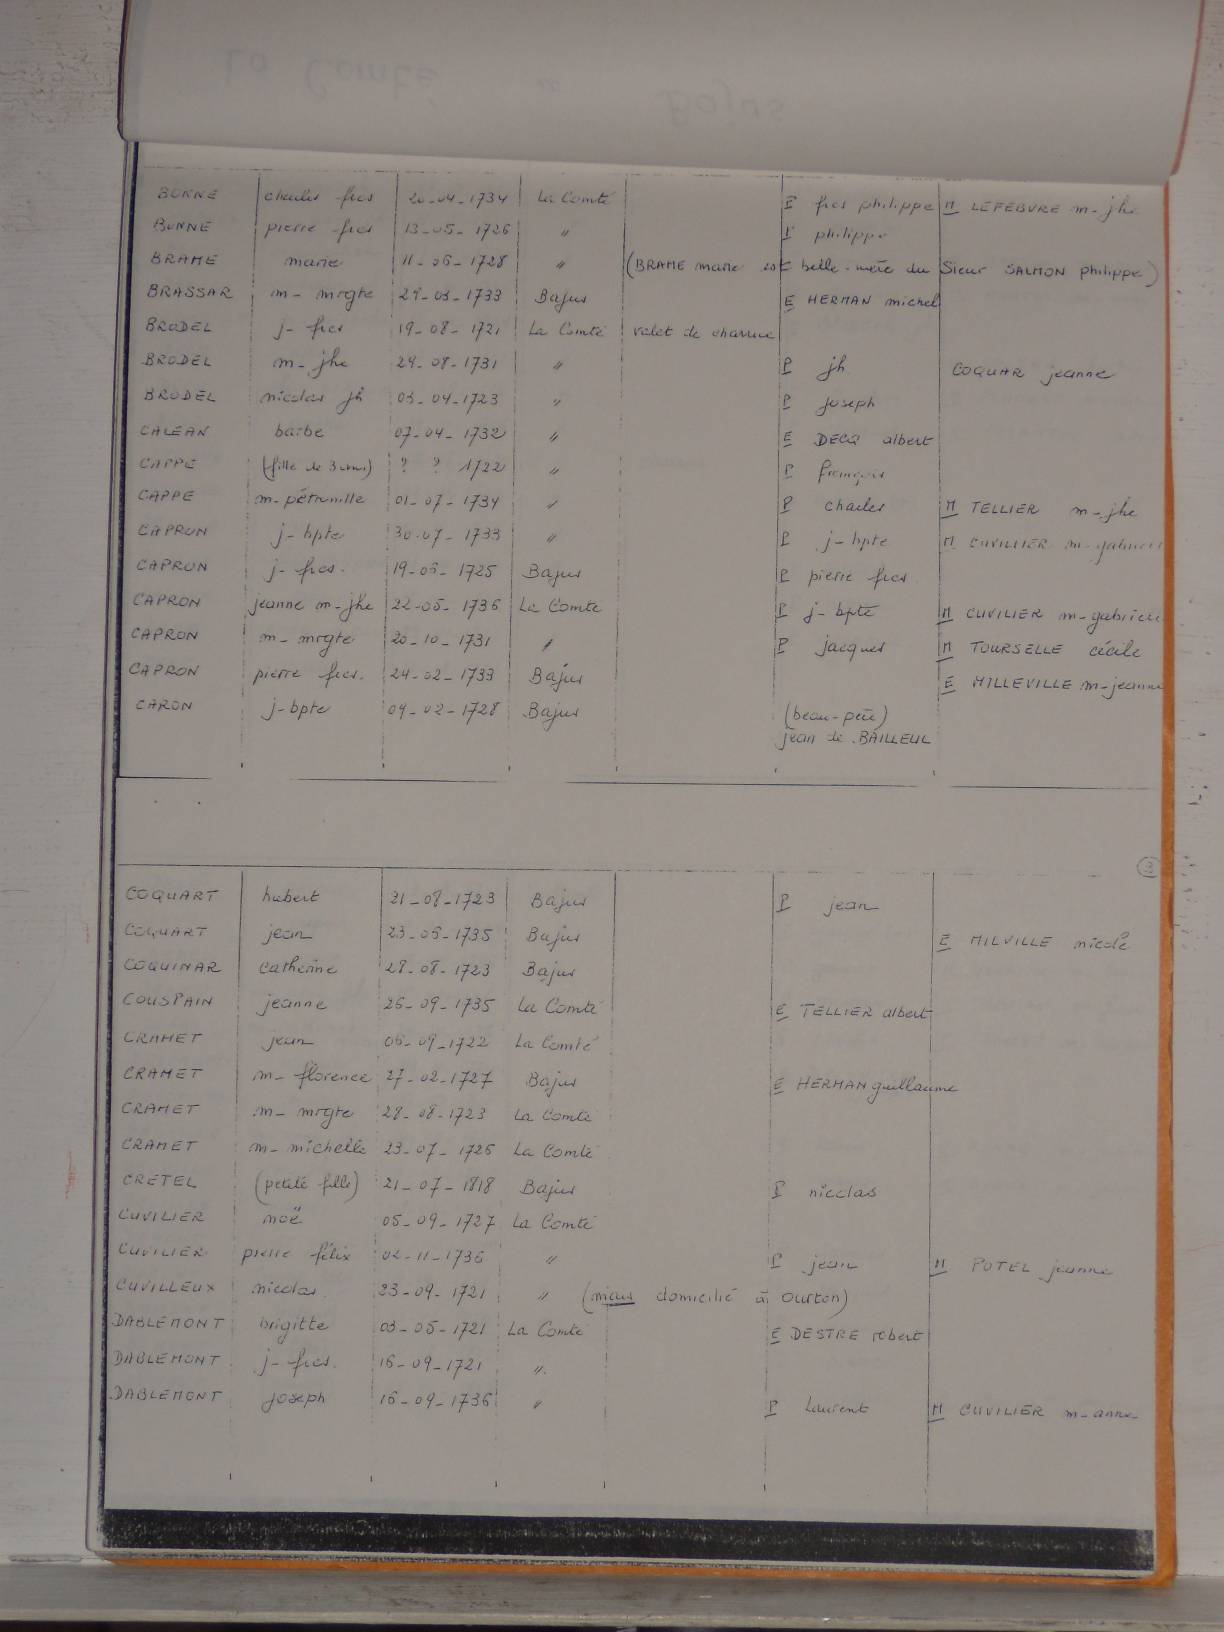 La Comté " Bajus
BONNE charles fres 20-04-1734 La Comté P fres philippe M LEFEBVRE m-jhe
BONNE pierre fres 13-05-1726 " P philippe
BRAME marie 11-06-1728 " (BRAME marie est belle-mère du Sieur SALMON philippe)
BRASSAR m-mrgte 29-03-1733 Bajus E HERMAN michel
BRODEL j-fres 19-08-1721 La Comté valet de charrue
BRODEL m-jhe 24-08-1731 " P jh COQUAR jeanne
BRODEL nicolas jh 03-04-1723 " P joseph
CALEAN barbe 07-04-1732 " E DECQ albert
CAPPE (fille de 3 ans) ? ? 1722 " P françois
CAPPE m-pétronille 01-07-1734 " P charles M TELLIER m-jhe
CAPRON j-bpte 30-07-1733 " P j-bpte M CUVILIER m-gabriel
CAPRON j-fres. 19-06-1725 Bajus P pierre fres
CAPRON jeanne m-jhe 22-05-1736 La Comté P j-bpte M CUVILIER m-gabriel
CAPRON m-mrgte 20-10-1731 " P jacques M TOURSELLE cécile
CAPRON pierre fres. 24-02-1733 Bajus E MILLEVILLE m-jeanne
CARON j-bpte 04-02-1728 Bajus (beau-père)
jean de BAILLEUL
3
COQUART hubert 21-08-1723 Bajus P jean
COQUART jean 23-06-1735 Bajus E MILVILLE nicole
COQUINAR catherine 28-08-1723 Bajus
COUSPAIN jeanne 26-09-1735 La Comté E TELLIER albert
CRAMET jean 06-09-1722 La Comté
CRAMET m-florence 27-02-1727 Bajus E HERMAN guillaume
CRAMET m-mrgte 28-08-1723 La Comté
CRAMET m-michelle 23-07-1726 La Comté
CRETEL (petite fille) 21-07-1818 Bajus P nicolas
CUVILIER noë 05-09-1727 La Comté
CUVILIER pierre félix 02-11-1736 " P jean M POTEL jeanne
CUVILLEUX nicolas 23-09-1721 " (mais domicilié à Ourton)
DABLEMONT brigitte 03-05-1721 La Comté E DESTRE robert
DABLEMONT j-fres. 16-09-1721 "
DABLEMONT joseph 16-09-1736 " P Laurent M CUVILIER m-anne